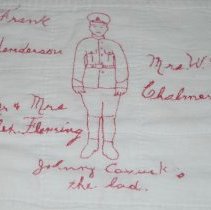 Frank
Henderson
Mrs W.
Chalmer
r & Mrs
Fleming
Johnny Canuck's
the lad.